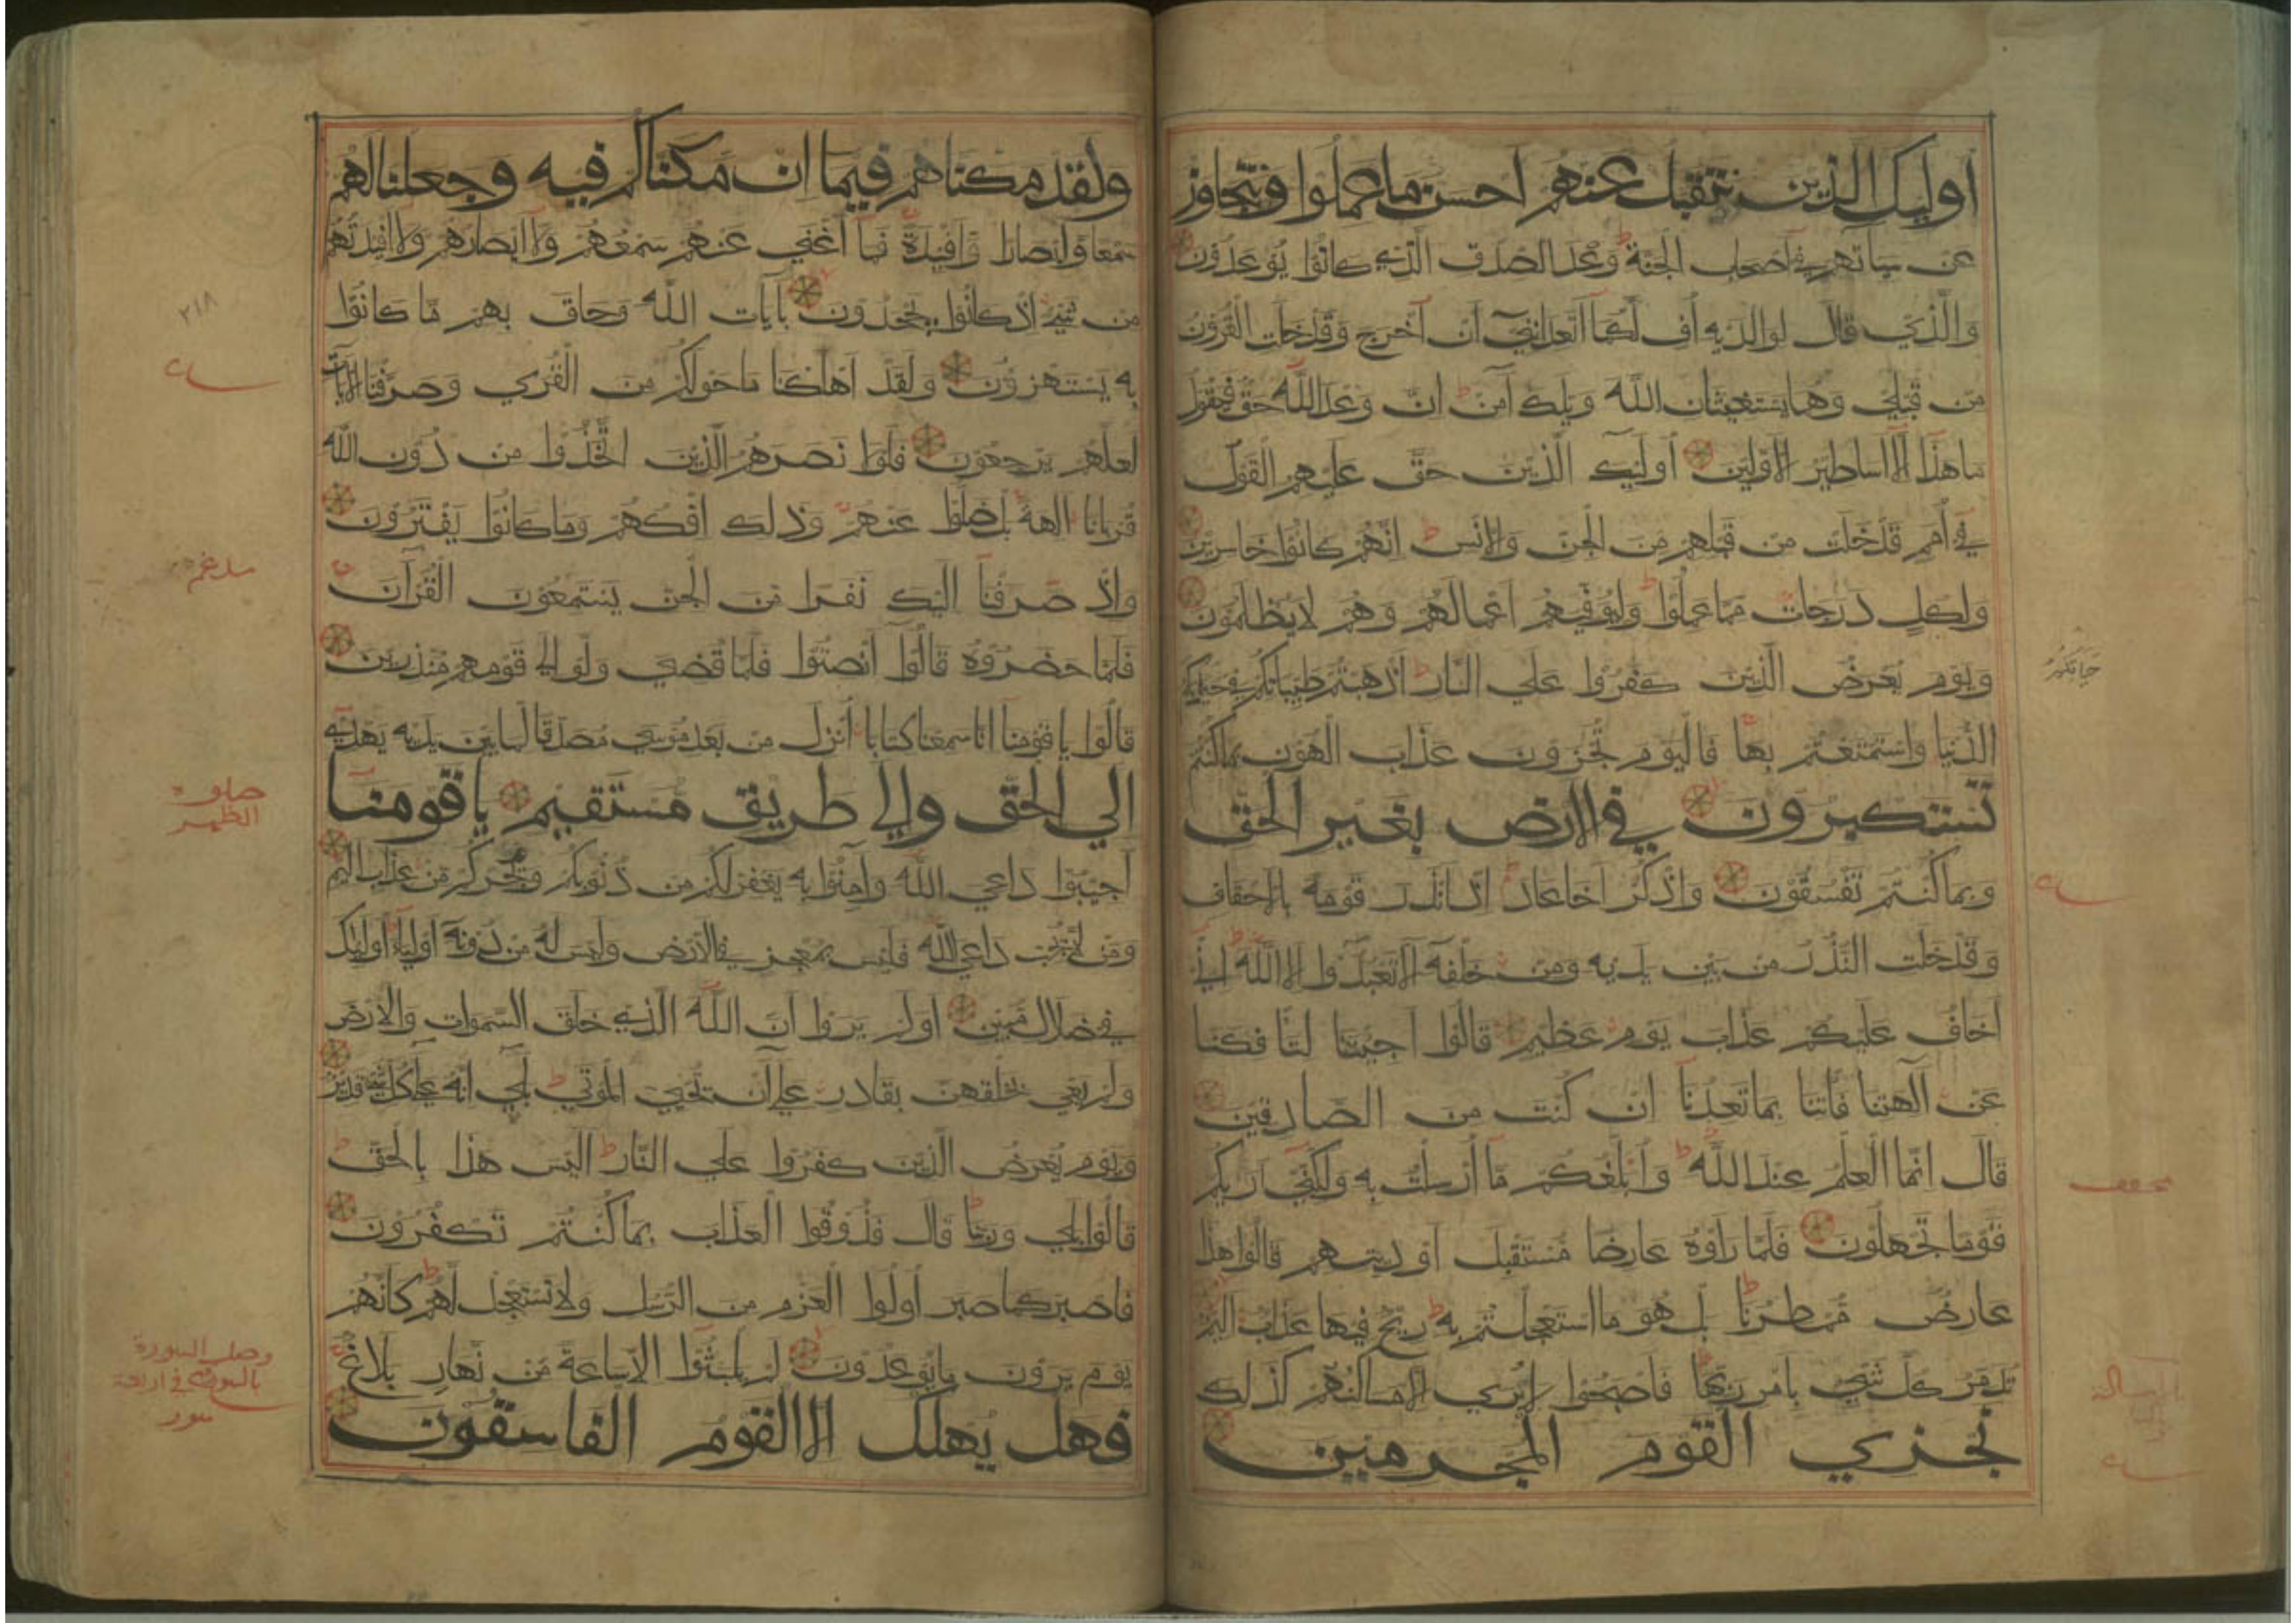 اولئك الذين نتقبل عنهم احسن ما عملوا ونتجاوز
عن سيآتهم في أصحاب الجنة وعد الصدق الذي كانوا يوعدون
والذي قال لوالديه أف لكما أتعدانني أن أخرج وقد خلت القرون
من قبلي وهما يستغيثان الله ويلك آمن ان وعد الله حق فيقول
ما هذا الا اساطير الاولين أولئك الذين حق عليهم القول
في أمم قد خلت من قبلهم من الجن والانس انهم كانوا خاسرين
ولكل درجات مما عملوا وليوفيهم اعمالهم وهم لا يظلمون
ويوم يعرض الذين كفروا علي النار اذهبتم طيباتكم في حياتكم
الدنيا واستمتعتم بها فاليوم تجزون عذاب الهون بما كنتم
تستكبرون في الارض بغير الحق
وبما كنتم تفسقون واذكر اخا عاد اذ انذر قومه بالاحقاف
وقد خلت النذر من بين يديه ومن خلفه الا تعبدوا الا الله اني
اخاف عليكم عذاب يوم عظيم قالوا اجئتنا لتافكنا
عن آلهتنا فأتنا بما تعدنا ان كنت من الصادقين
قال انما العلم عند الله وأبلغكم ما أرسلت به ولكني أريكم
قوما تجهلون فلما رأوه عارضا مستقبل أوديتهم قالوا هذا
عارض ممطرنا بل هو ما استعجلتم به ريح فيها عذاب اليم
تدمر كل شيء بامر ربها فاصبحوا لا يري الا مساكنهم كذلك
نجزي القوم المجرمين
حياتكم
ولقد مكناهم فيما ان مكناكم فيه وجعلنا لهم
سمعا وابصارا وافئدة فما أغني عنهم سمعهم ولا ابصارهم ولا افئدتهم
من شيء اذ كانوا يجحدون بآيات الله وحاق بهم ما كانوا
به يستهزؤن ولقد اهلكنا ما حولكم من القري وصرفنا الآيات
لعلهم يرجعون فلولا نصرهم الذين اتخذوا من دون الله
قربانا الهة بل ضلوا عنهم وذلك افكهم وما كانوا يفترون
واذ صرفنا اليك نفرا من الجن يستمعون القرآن
فلما حضروه قالوا أنصتوا فلما قضي ولوا الي قومهم منذرين
قالوا يا قومنا انا سمعنا كتابا أنزل من بعد موسي مصدقا لما بين يديه يهدي
الي الحق والي طريق مستقيم يا قومنا
أجيبوا داعي الله وآمنوا به يغفر لكم من ذنوبكم ويجركم من عذاب اليم
ومن لا يجب داعي الله فليس بمعجز في الارض وليس له من دونه أولياء أولئك
في ضلال مبين أولم يروا أن الله الذي خلق السموات والارض
ولم يعي بخلقهن بقادر علي أن يحيي الموتي بلي انه علي كل شيء قدير
ويوم يعرض الذين كفروا علي النار اليس هذا بالحق
قالوا بلي وربنا قال فذوقوا العذاب بما كنتم تكفرون
فاصبر كما صبر أولوا العزم من الرسل ولا تستعجل لهم كأنهم
يوم يرون ما يوعدون لم يلبثوا الا ساعة من نهار بلاغ
فهل يهلك الا القوم الفاسقون
٢١٨
صلوة
الظهر
وصل السورة
بالسورة في اربعة
سور